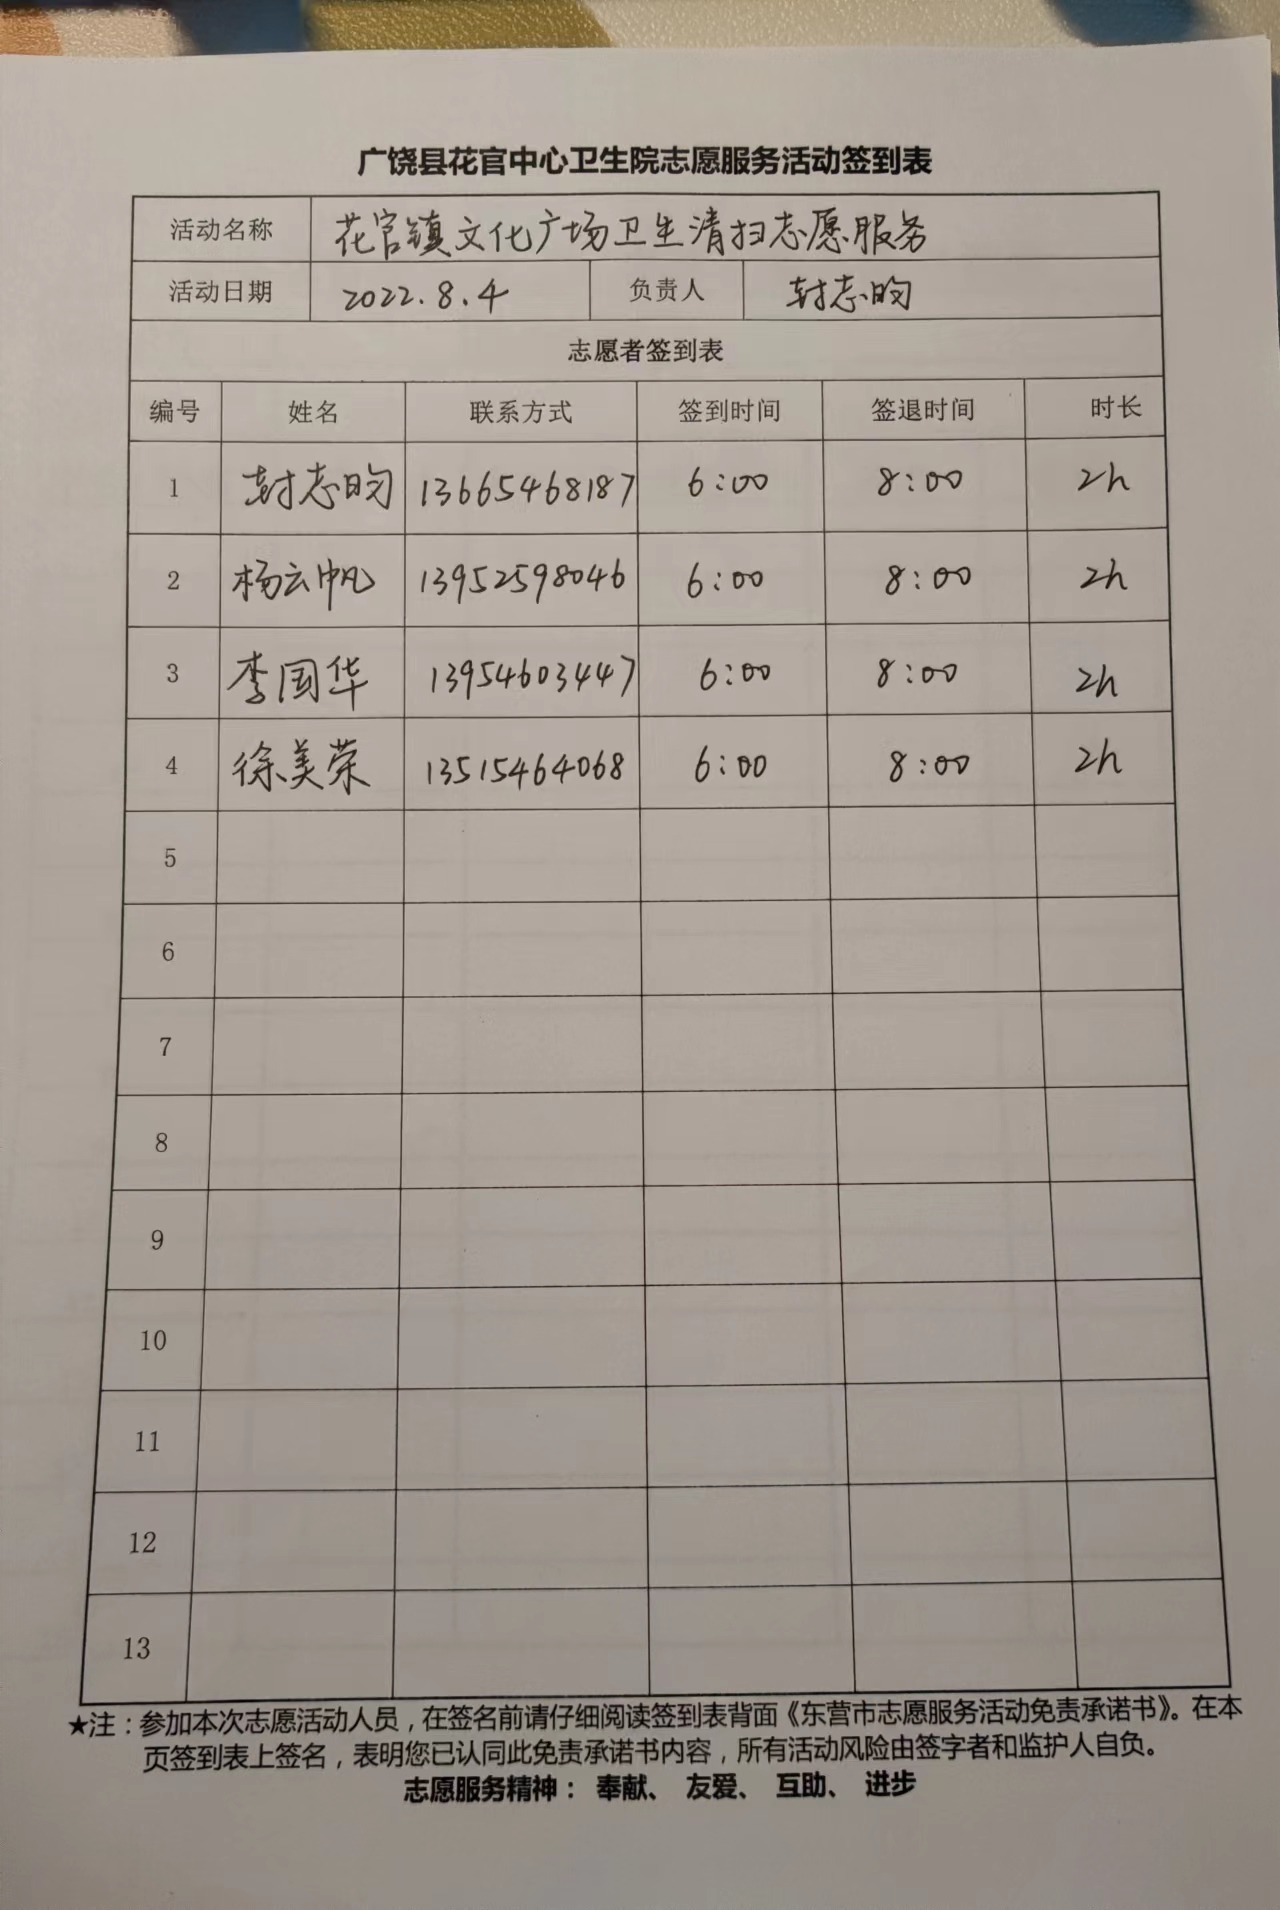 广饶县花官中心卫生院志愿服务活动签到表
活动名称 花官镇文化广场卫生清扫志愿服务
活动日期 2022.8.4 负责人 封志昀
志愿者签到表
编号 姓名 联系方式 签到时间 签退时间 时长
1 封志昀 13665468187 6:00 8:00 2h
2 杨云帆 13952598046 6:00 8:00 2h
3 李国华 13954603447 6:00 8:00 2h
4 徐美荣 13515464068 6:00 8:00 2h
5
6
7
8
9
10
11
12
13
★注：参加本次志愿活动人员，在签名前请仔细阅读签到表背面《东营市志愿服务活动免责承诺书》。在本
页签到表上签名，表明您已认同此免责承诺书内容，所有活动风险由签字者和监护人自负。
志愿服务精神： 奉献、 友爱、 互助、 进步